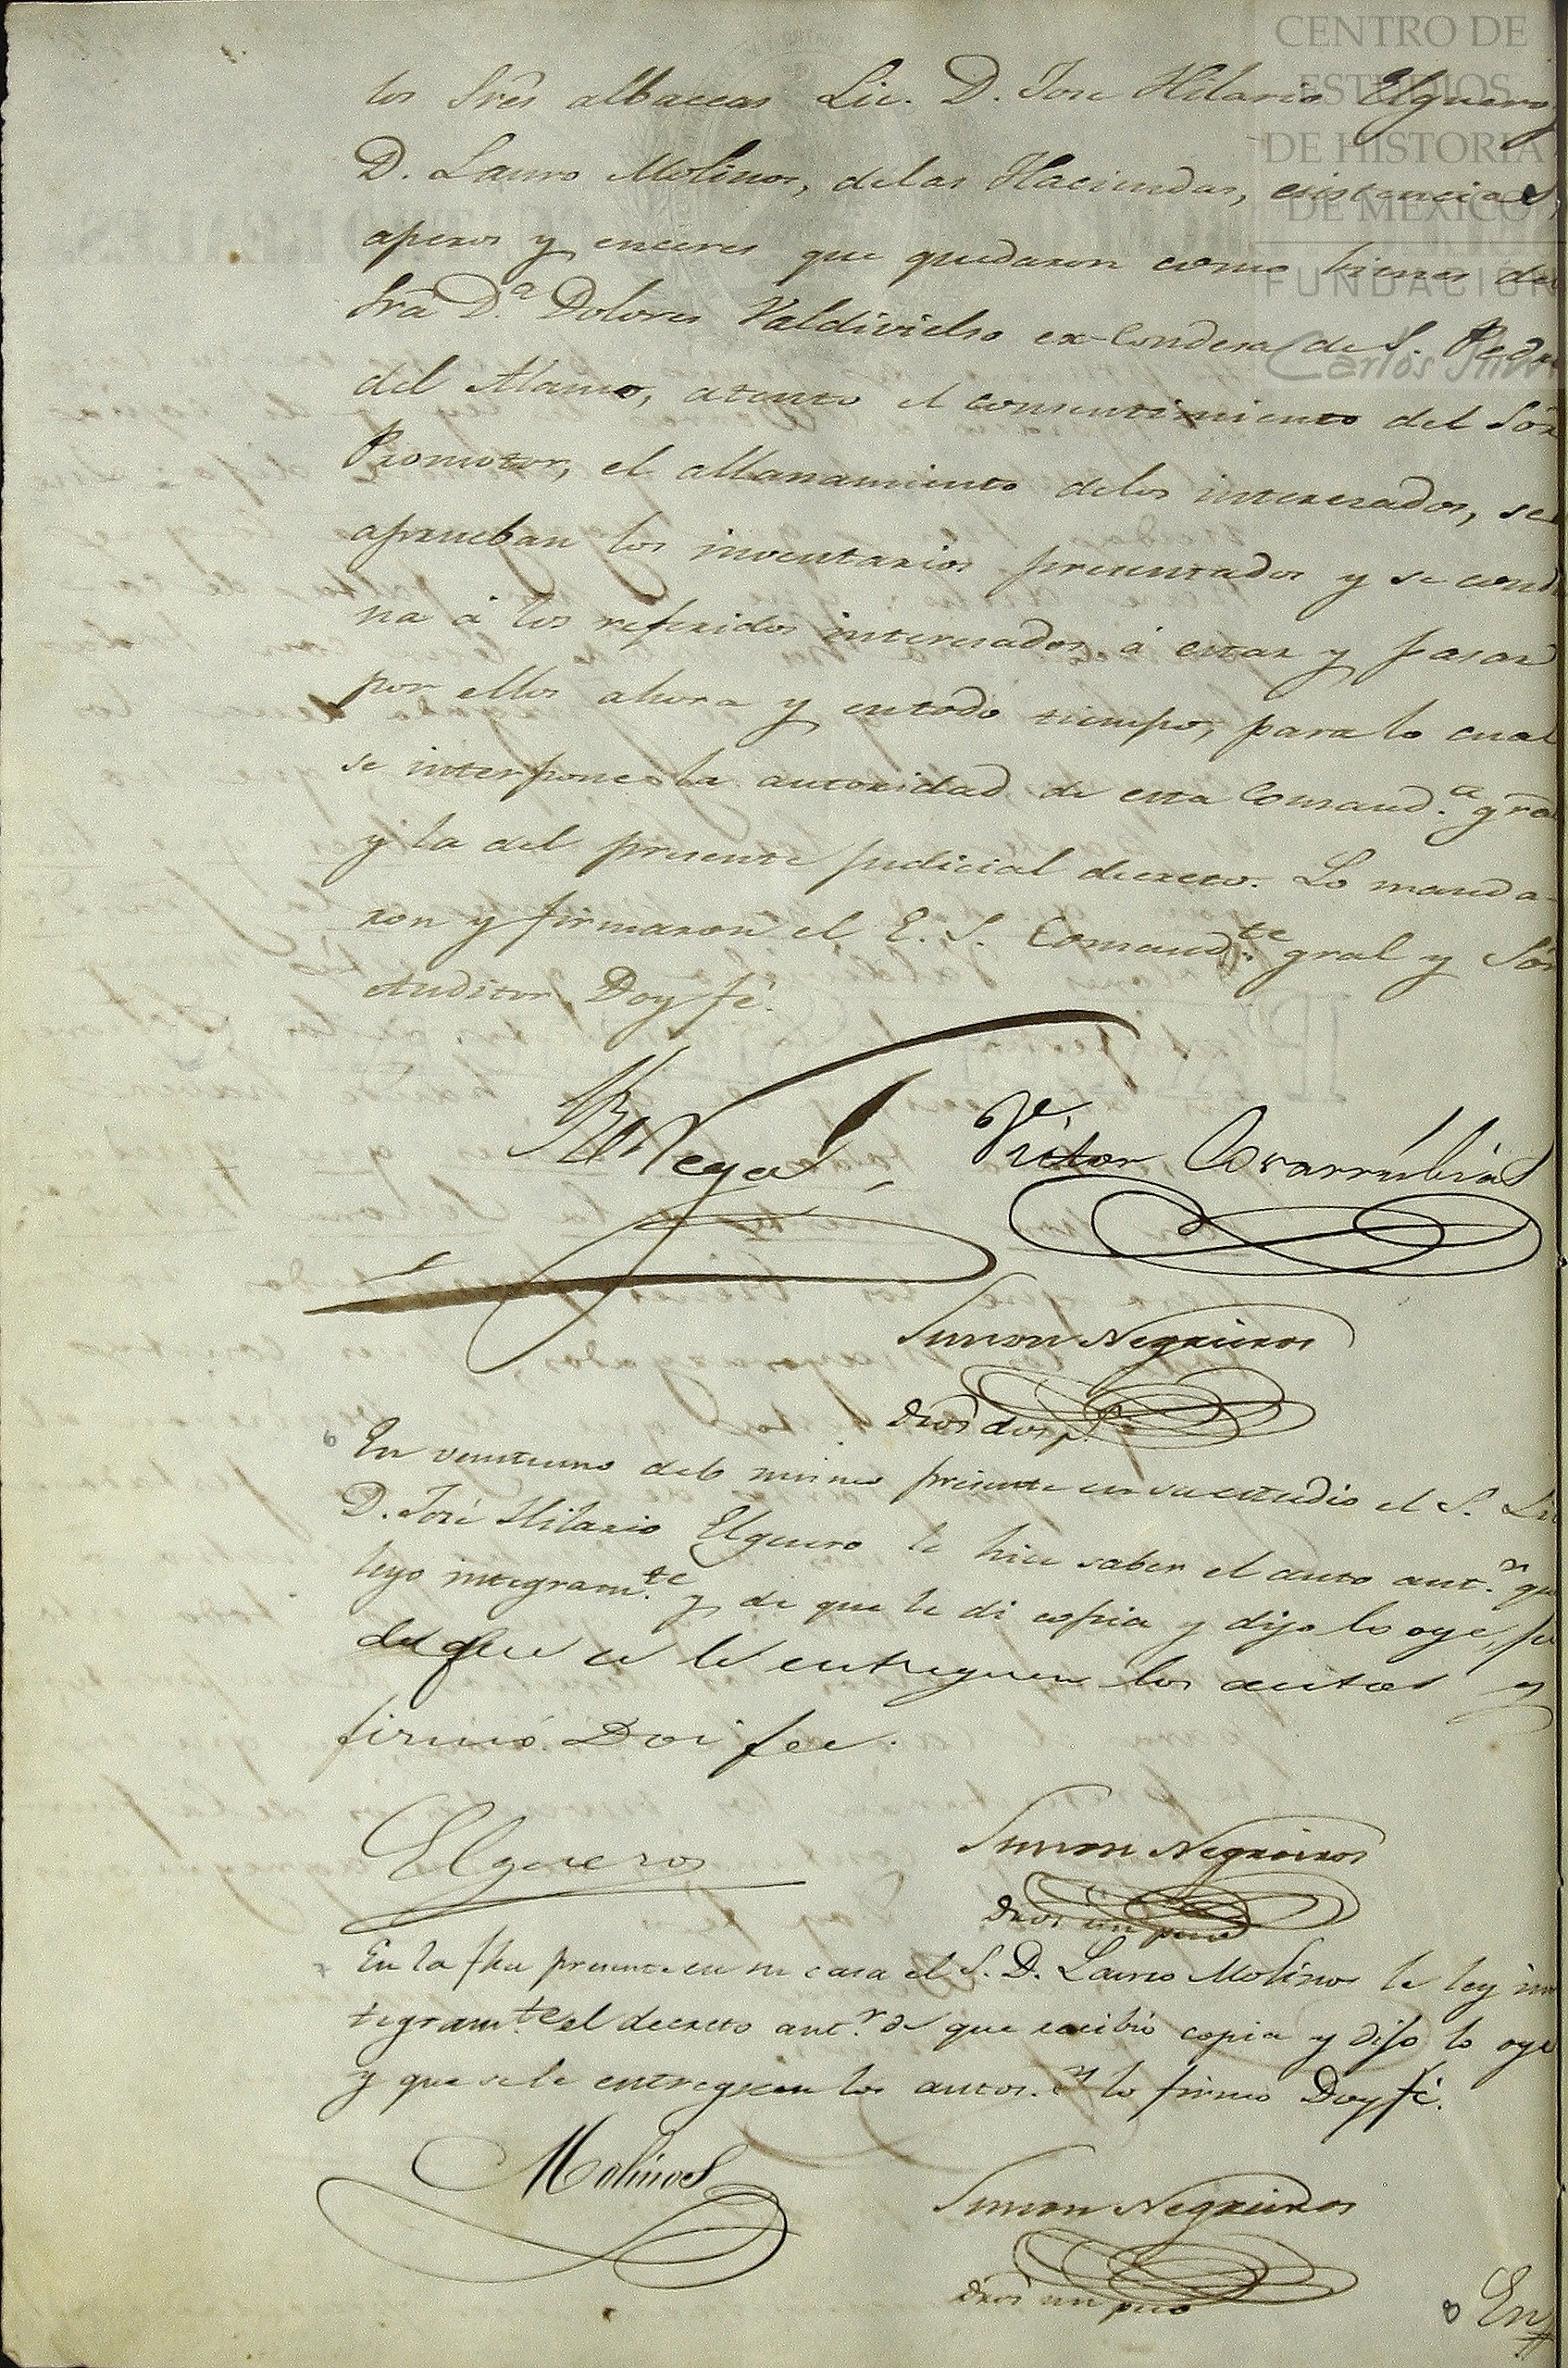 los Srês albaceas Lic. D. Jose Hilario Elguero,
D. Lauro Molinos, delas Haciendas, existencias,
aperos y enceres que quedaron como bienes de
Srâ D.ª Dolores Valdivielso ex-Condesa de S. Pedro
del Alamo, atento el consentimiento del Sôr
Promotor, el allanamiento delos interesados, se
aprueban los inventarios presentados y se conde
na á los referidos interesados á estar y pasar
por ellos ahora y entodo tiempo, para lo cual
se interpone la autoridad de esta Comand.ª gral
y la del presente judicial decreto. Lo manda-
ron y firmaron el E. S. Comand.te gral y Sôr
Auditor. Doy fé.
Vega
Victor Covarrubias
Simon Negreiros
dros dos p.
En veintiuno delo mismo presente en su estudio el S. Lic
D. José Hilario Elguero le hice saber el auto ant.r que
leyo integram.te y de que le di copia y dijo lo oye, pi
de que se le entreguen los autos y
firmó. Doi fee.
Elguero
Simon Negreiros
dros un peso
En la fha presente en su casa el S. D. Lauro Molinos le ley in
tegram.te el decreto ant.r de que recibió copia y dijo lo oye
y que sele entreguen los autos. Y lo firmo Doy fé.
Molinos
Simon Negreiros
dros un peso
En
CENTRO DE
ESTUDIOS
DE HISTORIA
DE MEXICO
FUNDACIÓN
Carlos Slim